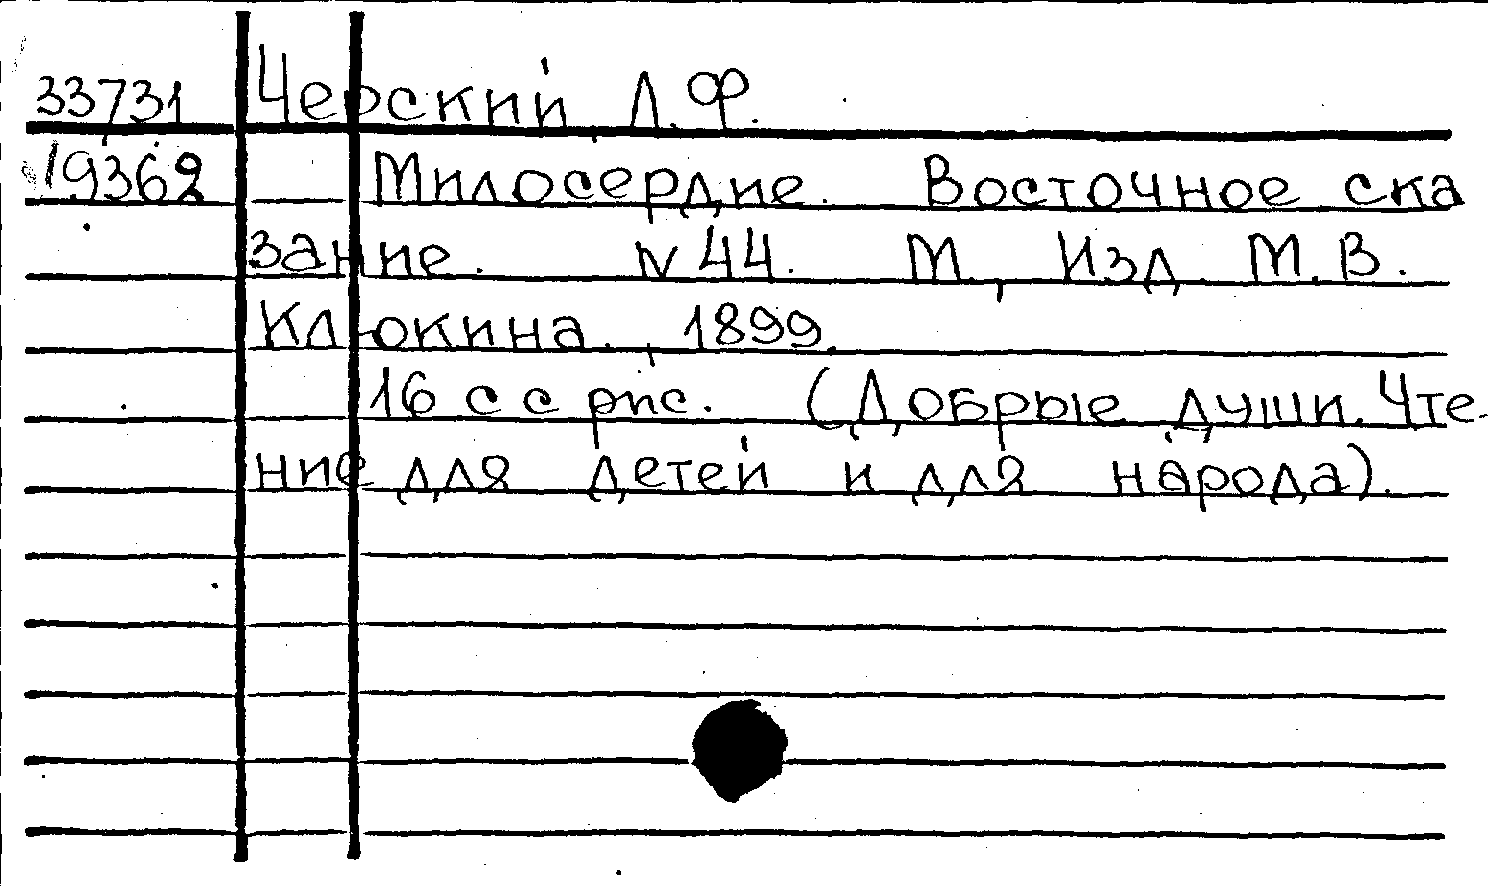 33731 Черский, Л.Ф.
19362 Милосердие. Восточное ска
зание. N 44. М., Изд. М.В.
Клюкина., 1899.
16 с с рис. (Добрые души. Чте-
ние для детей и для народа).